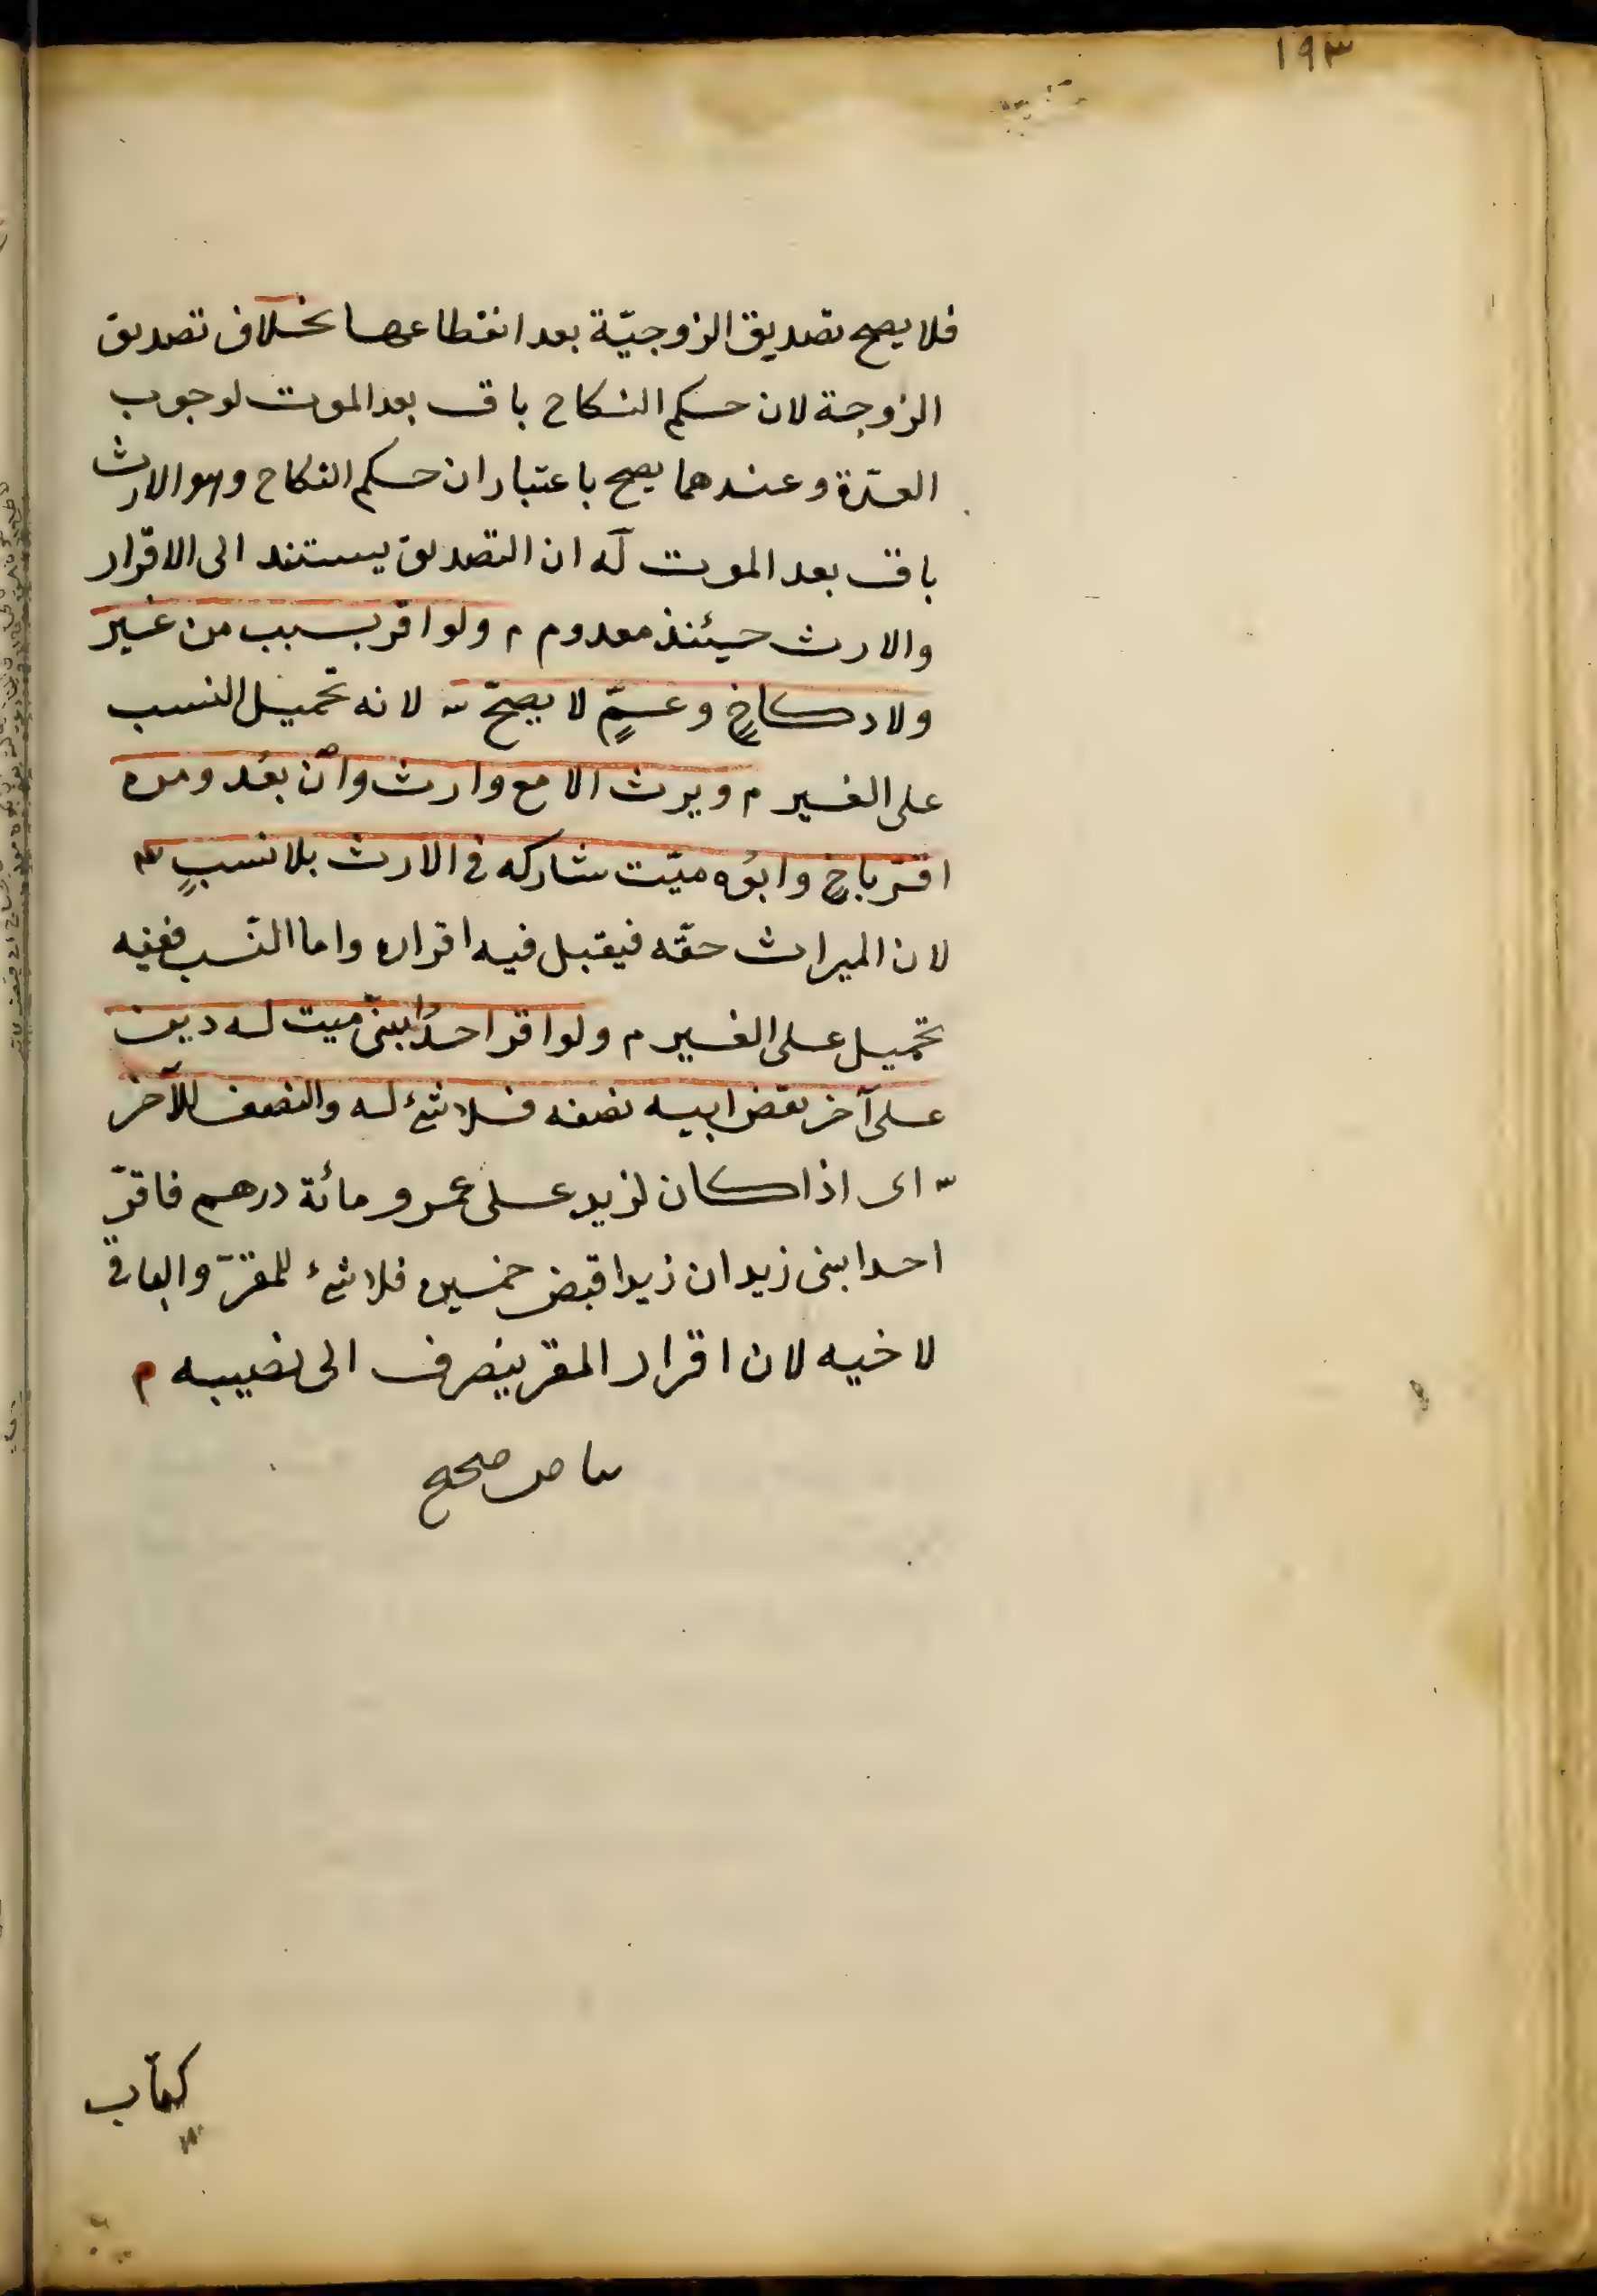 ١٩٣
فلا يصح تصديق الزوجيّة بعد انقطاعها بخلاف تصديق
الزوجة لان حكم النكاح باق بعد الموت لوجوب
العدّة وعندهما يصح باعتبار ان حكم النكاح وهو الارث
باق بعد الموت له ان التصديق يستند الى الاقرار
والارث حينئذ معدوم م ولو اقر بسبب من غير
ولاد كاخٍ وعمٍّ لا يصحّ ش لانه تحميل النسب
على الغير م ويرث الا مع وارث وان بعُد ومن
اقرّ باخٍ وابوه ميّت شاركه في الارث بلا نسبٍ ش
لان الميراث حقّه فيقبل فيه اقراره واما النّسب ففيه
تحميل على الغير م ولو اقر احدُ ابنَىْ ميت له دين
على آخر بقض ابيه نصفه فلا شئ له والنصف للآخر
ش اى اذا كان لزيد على عمرو مائة درهم فاقرّ
احد ابنى زيد ان زيدا قبض خمسين فلا شئ للمقرّ والباقى
لاخيه لان اقرار المقر ينصرف الى نصيبه م
كتاب